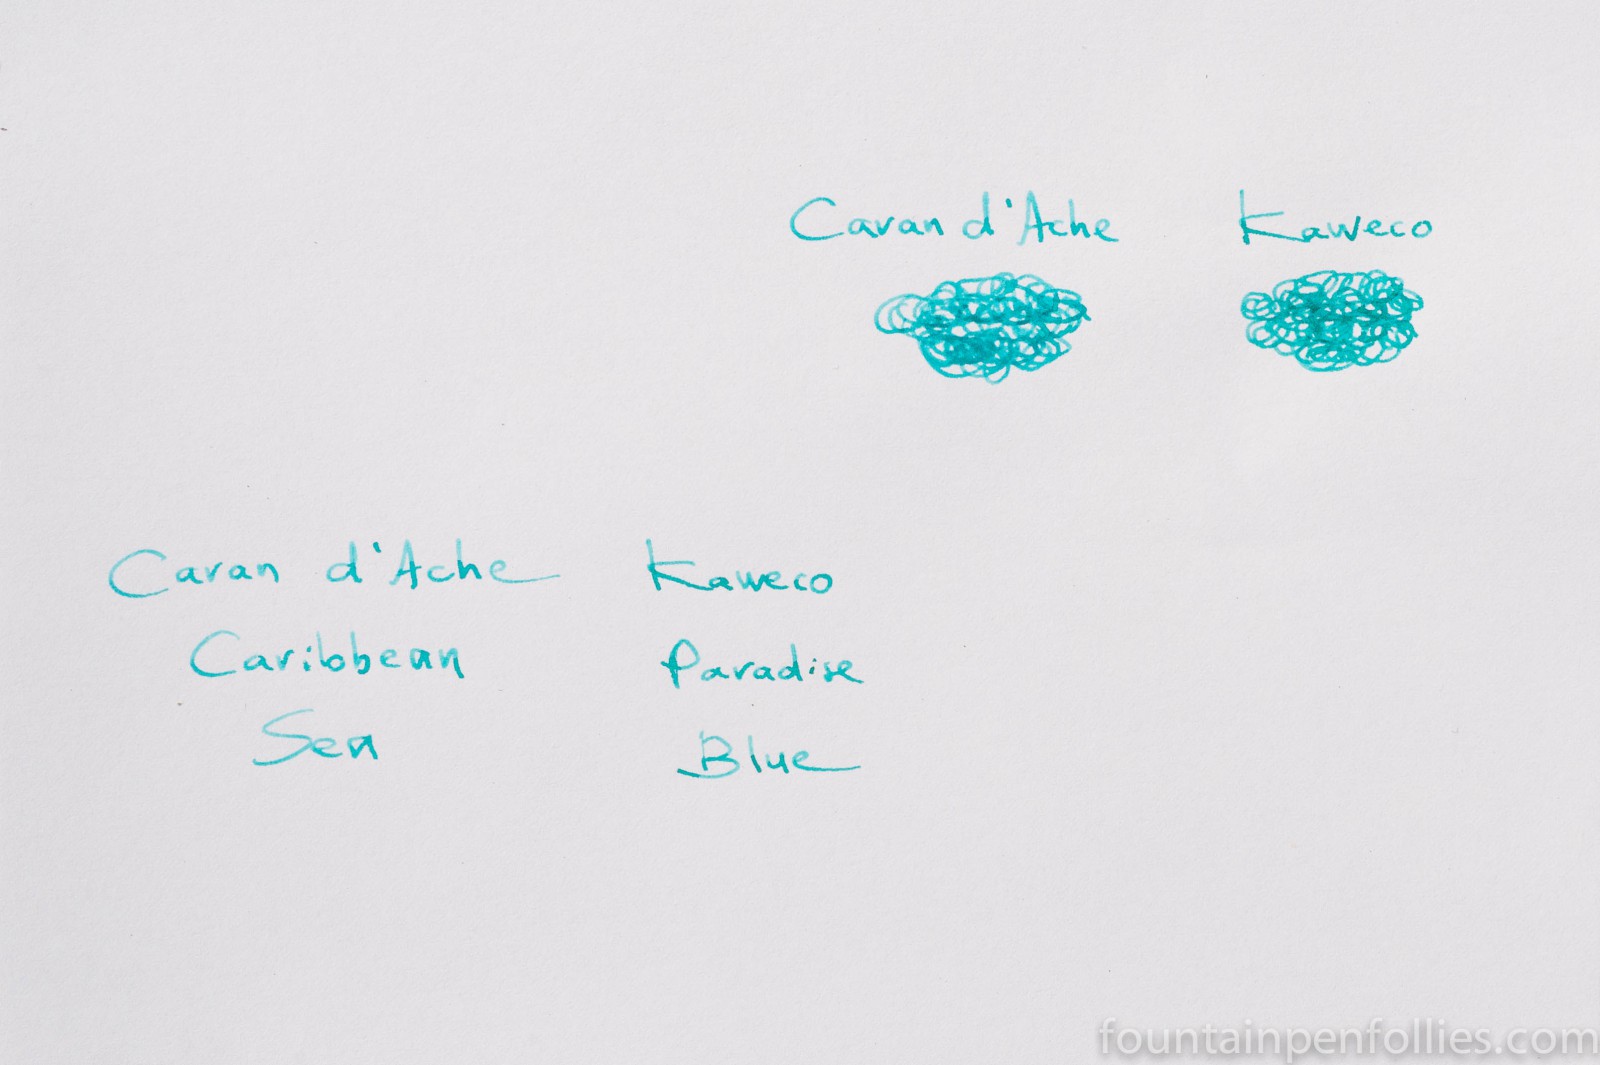 Caran d'Ache Kaweco
Caran d'Ache Kaweco
Caribbean Paradise
Sea Blue
fountainpenfollies.com